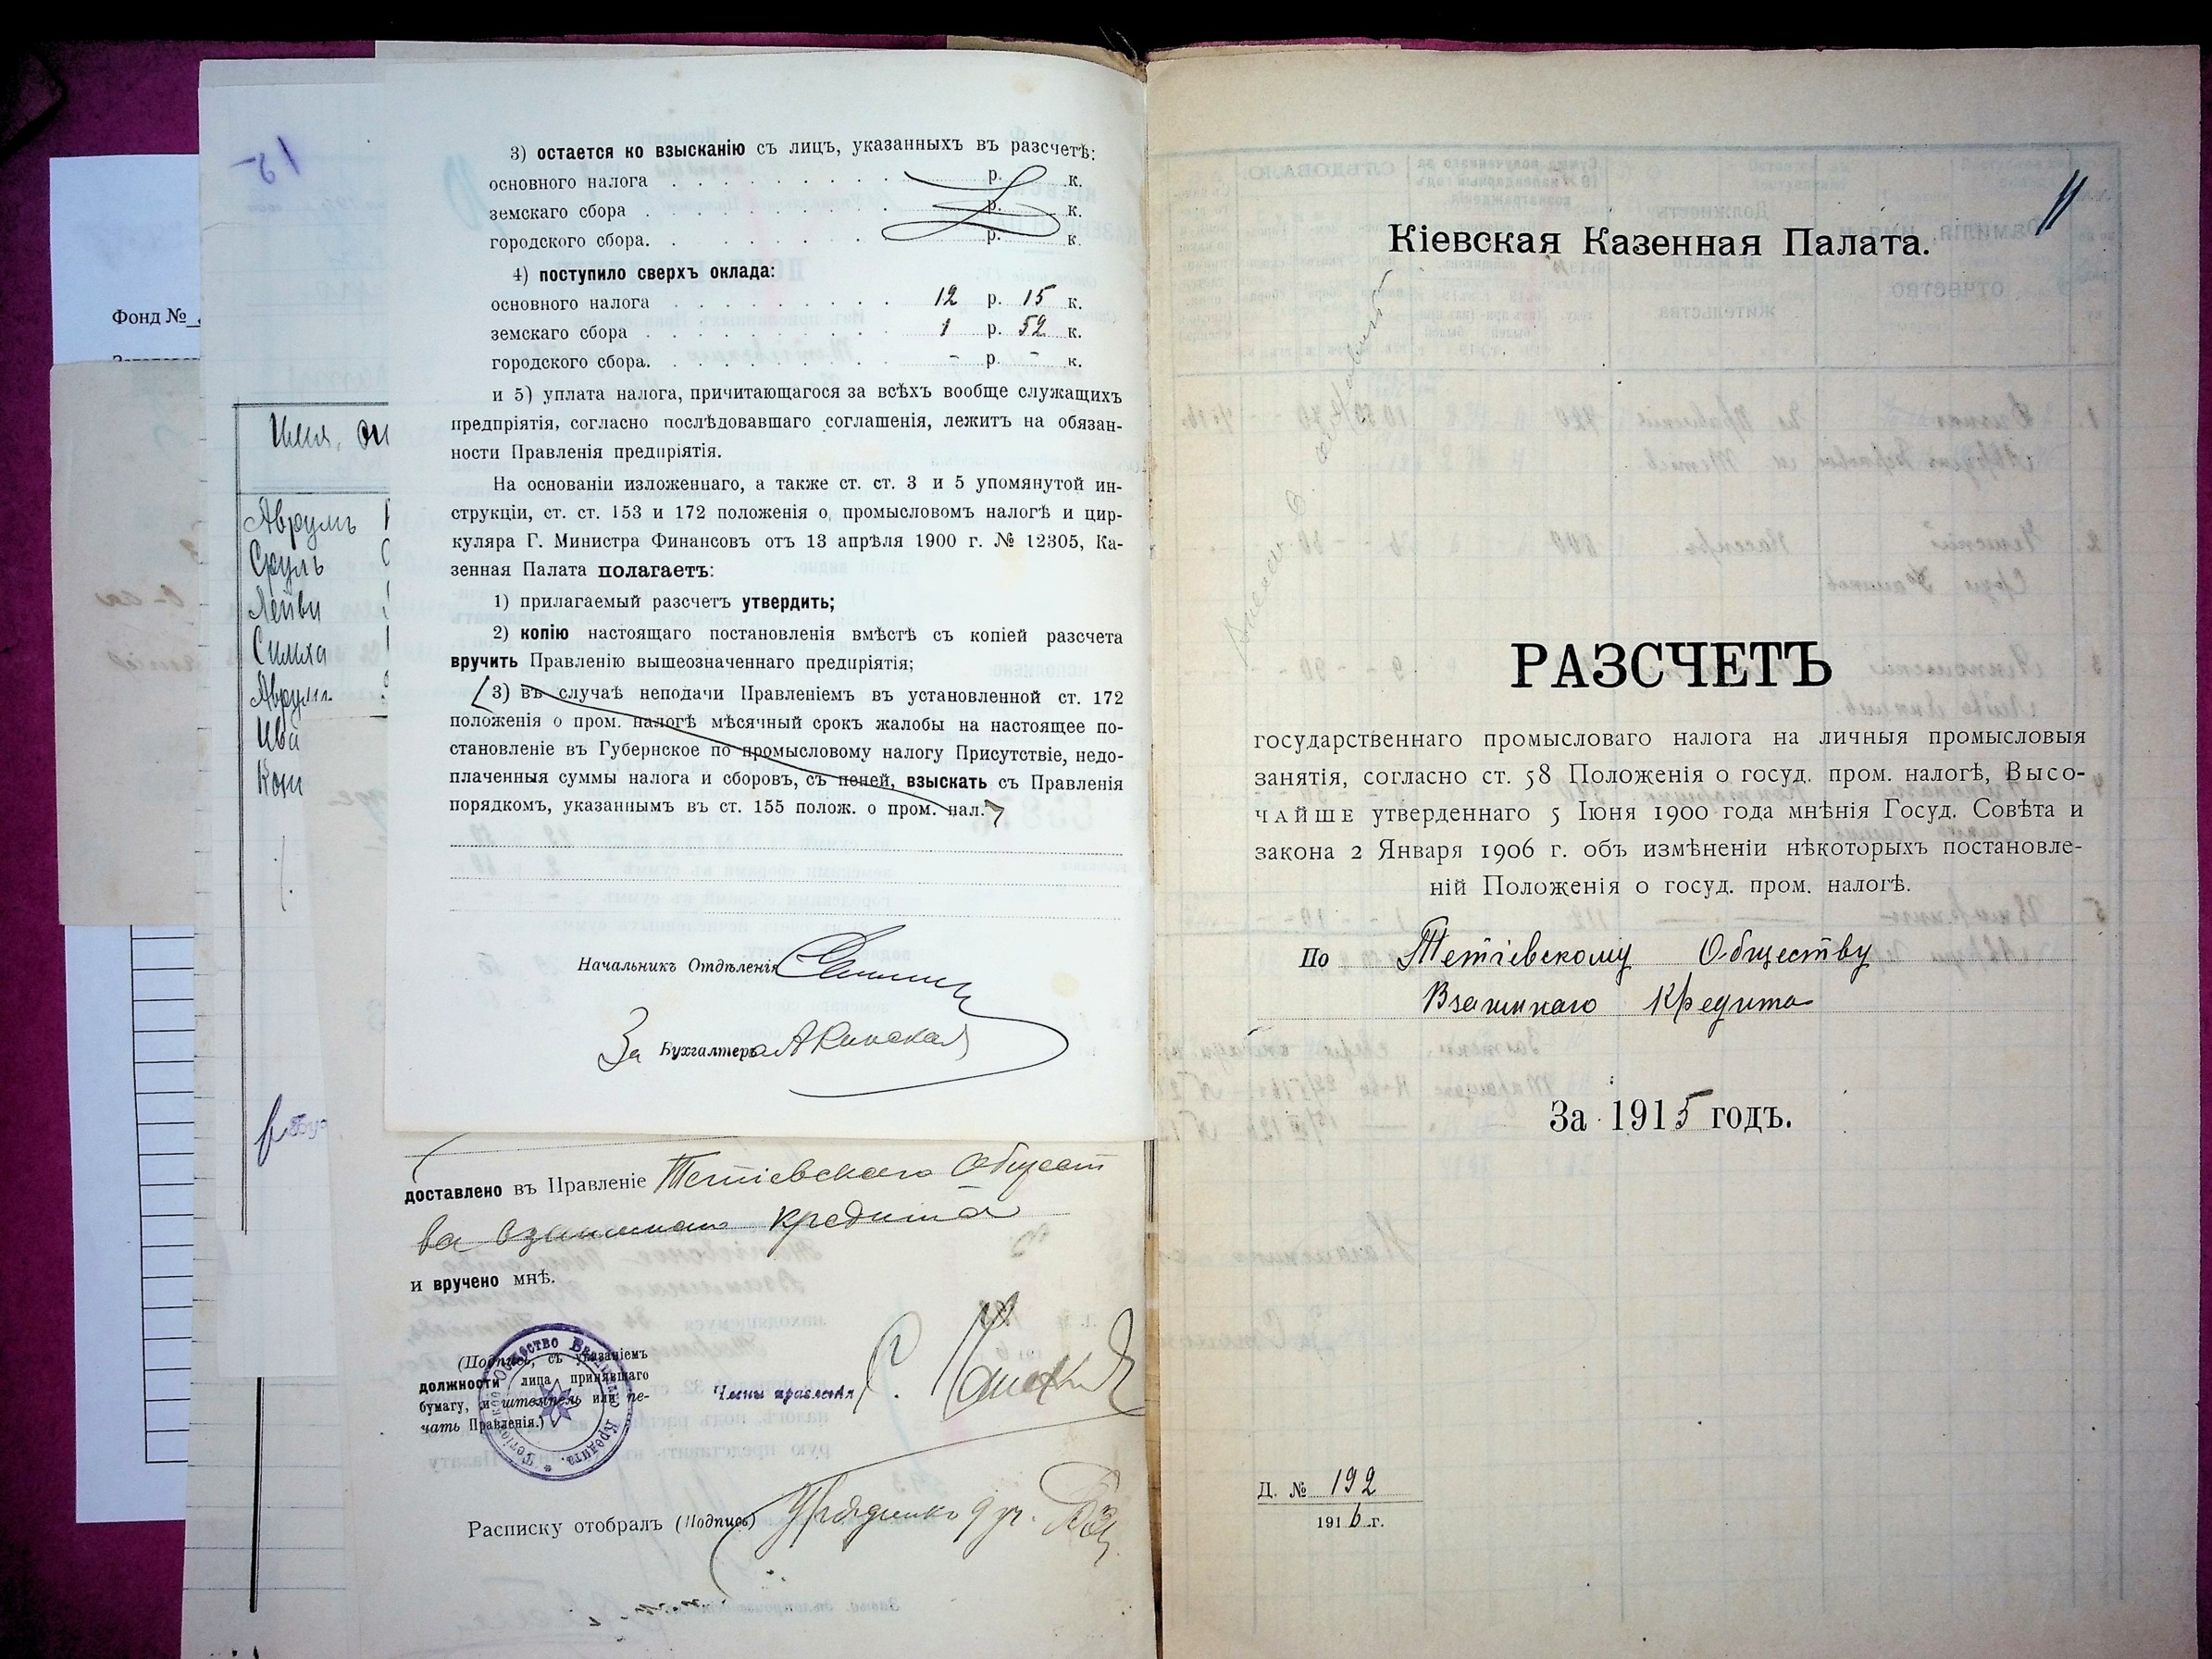 Фонд №
Имя, от
Аврумъ
Сруль
Лейви
Симха
Аврум.
3) остается ко взысканію съ лицъ, указанныхъ въ разсчетѣ:
основного налога . . . . . . . . . р. к.
земскаго сбора . . . . . . . . . р. к.
городского сбора. . . . . . . . р. к.
4) поступило сверхъ оклада:
основного налога . . . . . . . . . 12 р. 15 к.
земскаго сбора . . . . . . . . . 1 р. 52 к.
городского сбора. . . . . . . . . - р. - к.
и 5) уплата налога, причитающагося за всѣхъ вообще служащихъ
предпріятія, согласно послѣдовавшаго соглашенія, лежитъ на обязан-
ности Правленія предпріятія.
На основаніи изложеннаго, а также ст. ст. 3 и 5 упомянутой ин-
струкціи, ст. ст. 153 и 172 положенія о промысловомъ налогѣ и цир-
куляра Г. Министра Финансовъ отъ 13 апрѣля 1900 г. № 12305, Ка-
зенная Палата полагаетъ:
1) прилагаемый разсчетъ утвердить;
2) копію настоящаго постановленія вмѣстѣ съ копіей разсчета
вручить Правленію вышеозначеннаго предпріятія;
3) въ случаѣ неподачи Правленіемъ въ установленной ст. 172
положенія о пром. налогѣ мѣсячный срокъ жалобы на настоящее по-
становленіе въ Губернское по промысловому налогу Присутствіе, недо-
плаченныя суммы налога и сборовъ, съ пеней, взыскать съ Правленія
порядкомъ, указаннымъ въ ст. 155 полож. о пром. нал.
Начальникъ Отдѣленія
За Бухгалтера
доставлено въ Правленіе Тетіевскаго Общест
ва взаимнаго кредита
и вручено мнѣ.
(Подпись, съ указаніемъ
должности лица принявшаго
бумагу, и штемпель или пе-
чать Правленія.)
Члены правленія
Расписку отобралъ (Подпись)
11
Кіевская Казенная Палата.
РАЗСЧЕТЪ
государственнаго промысловаго налога на личныя промысловыя
занятія, согласно ст. 58 Положенія о госуд. пром. налогѣ, Высо-
чайше утверденнаго 5 Іюня 1900 года мнѣнія Госуд. Совѣта и
закона 2 Января 1906 г. объ измѣненіи нѣкоторыхъ постановле-
ній Положенія о госуд. пром. налогѣ.
По Тетіевскому Обществу
Взаимнаго Кредита
За 1915 годъ.
Д. № 192
1916 г.